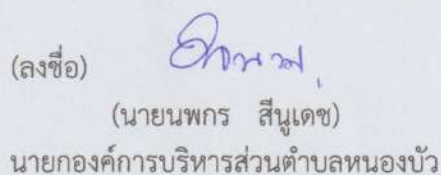 (ลงชื่อ)
(นายนพกร สีนูเดช)
นายกองค์การบริหารส่วนตำบลหนองบัว